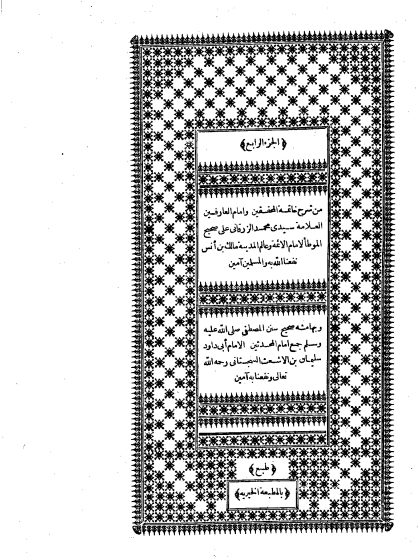 ﴿الجزء الرابع﴾
من شرح خاتمة المحققين وامام العارفين
العلامة سيدى محمد الزرقانى على صحيح
الموطأ لامام الائمة وعالم المدينة مالك بن أنس
نفعنا الله به والمسلمين آمين
وبهامشه صحيح سنن المصطفى صلى الله عليه
وسلم جمع امام المحدثين الامام أبى داود
سليمان بن الاشعث السجستانى رحمه الله
تعالى ونفعنا به آمين
﴿طبع﴾
﴿بالمطبعة الخيرية﴾